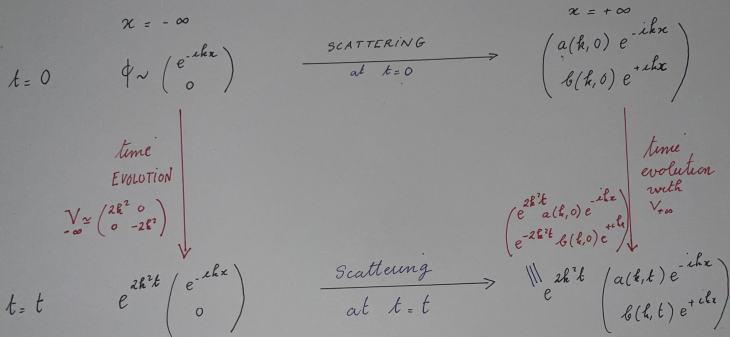 x = - ∞
x = + ∞
t = 0
ϕ ~ ( e^{-ikx} 0 )
SCATTERING
at t = 0
( a(k,0) e^{-ikx} b(k,0) e^{+ikx} )
time
EVOLUTION
V_{-∞} ≃ ( 2k² 0 0 -2k² )
time
evolution
with
V_{+∞}
( e^{2k²t} a(k,0) e^{-ikx} e^{-2k²t} b(k,0) e^{+ikx} )
t = t
e^{2k²t} ( e^{-ikx} 0 )
Scattering
at t = t
||| e^{2k²t} ( a(k,t) e^{-ikx} b(k,t) e^{+ikx} )